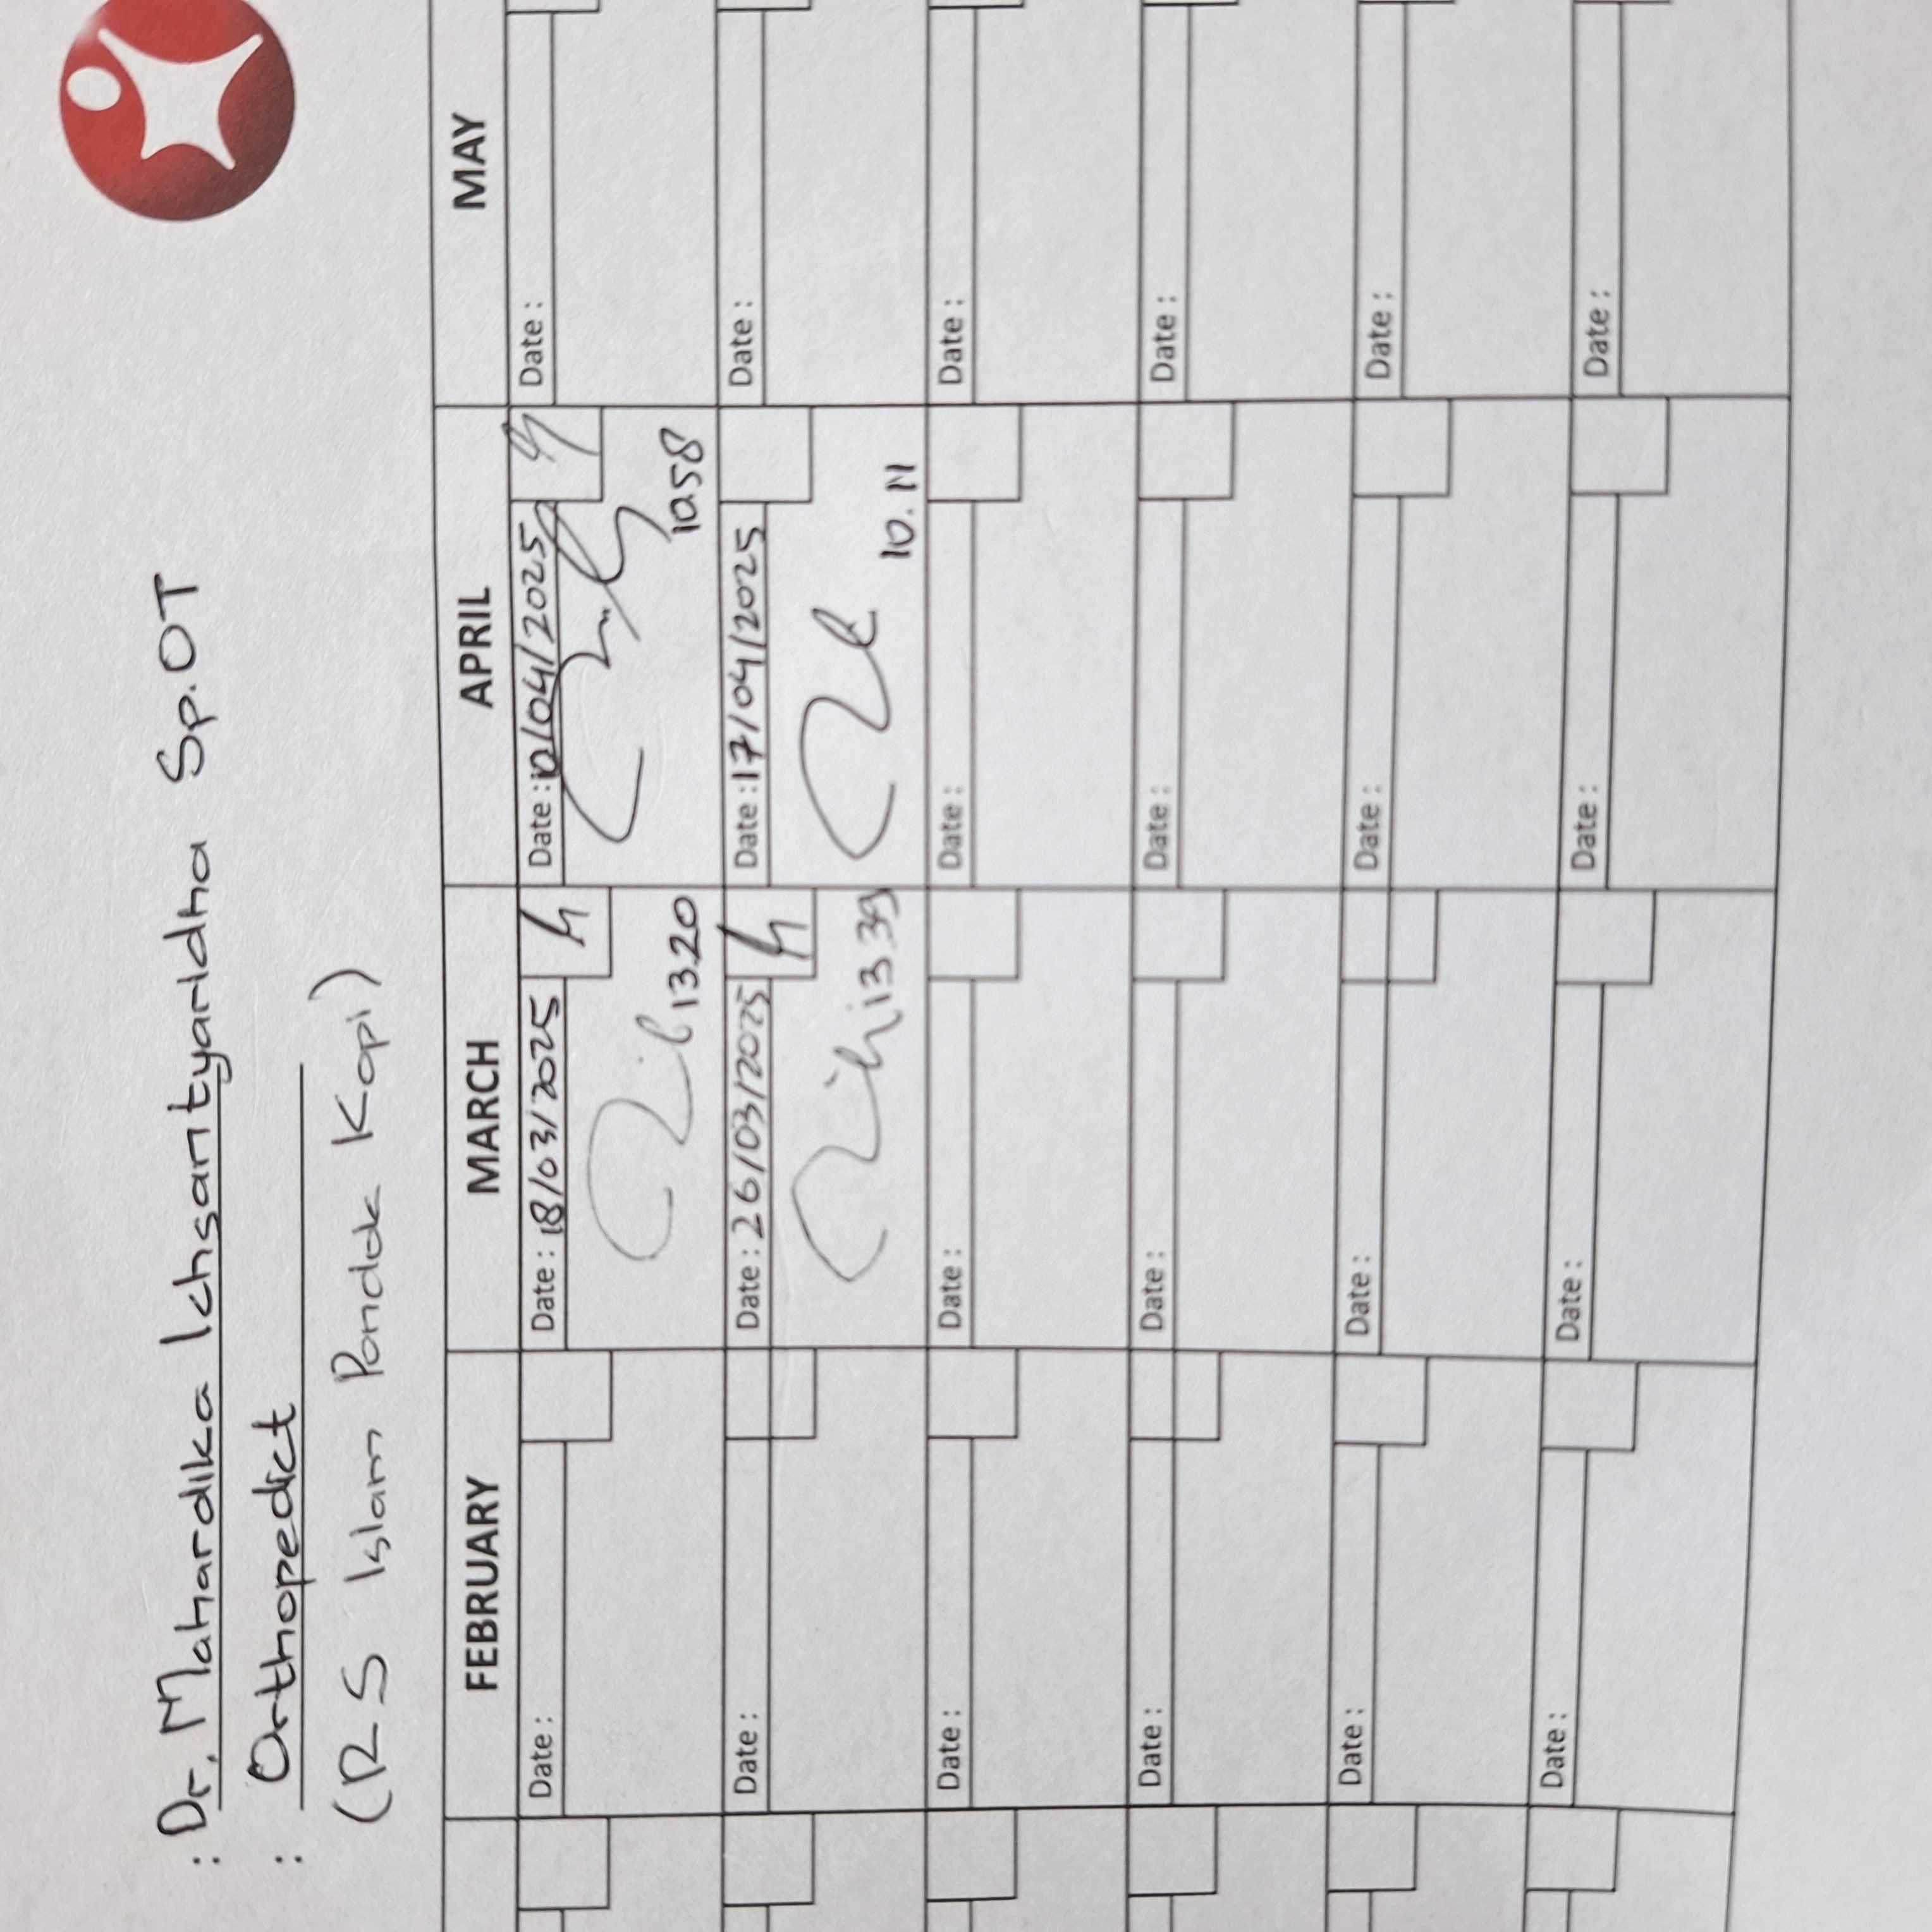 : Dr. Mahardika Ichsantyaridha Sp.OT
: Orthopedict
(RS Islam Pondok Kopi)
FEBRUARY MARCH APRIL MAY
Date : Date : 18/03/2025 Date : 10/04/2025 Date :
13.20 10.58
Date : Date : 26/03/2025 Date : 17/04/2025 Date :
13.39 10.11
Date : Date : Date : Date :
Date : Date : Date : Date :
Date : Date : Date : Date :
Date : Date : Date : Date :